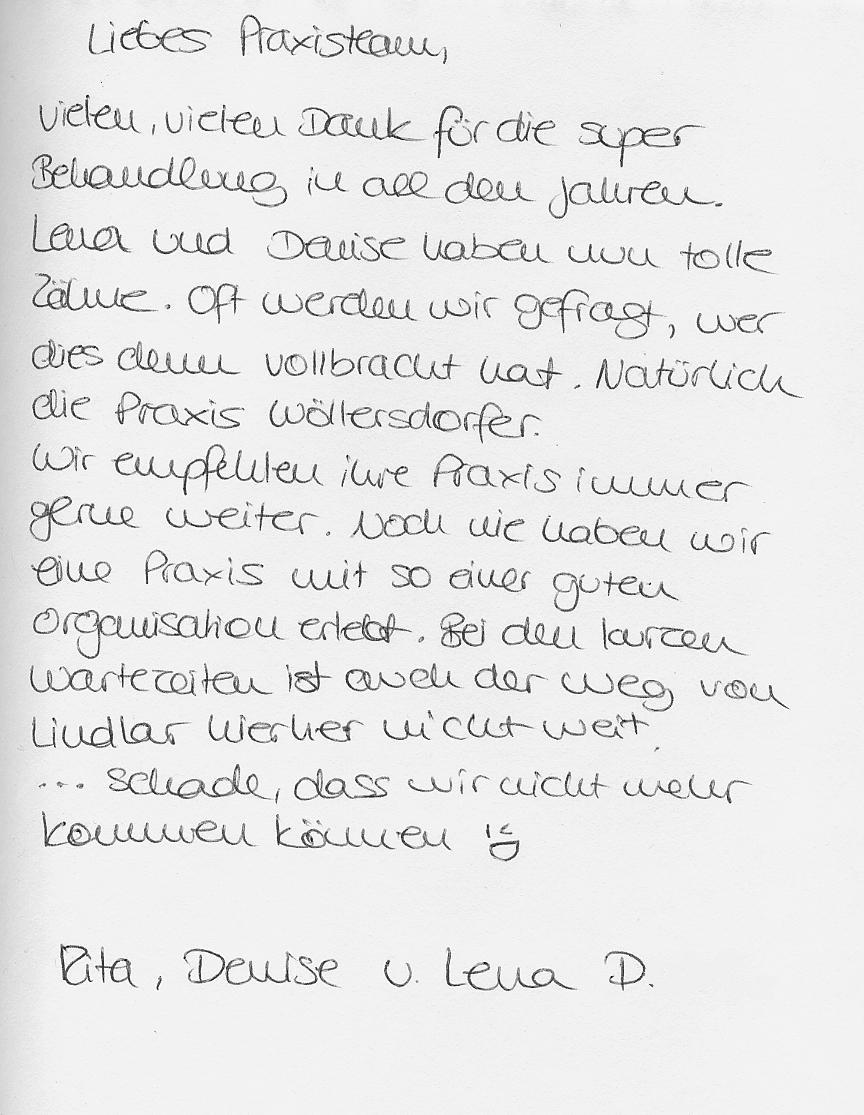 Liebes Praxisteam,
vielen, vielen Dank für die super
Behandlung in all den Jahren.
Lena und Denise haben nun tolle
Zähne. Oft werden wir gefragt, wer
dies denn vollbracht hat. Natürlich
die Praxis Wöllersdorfer.
Wir empfehlen ihre Praxis immer
gerne weiter. Noch nie haben wir
eine Praxis mit so einer guten
Organisation erlebt. Bei den kurzen
Wartezeiten ist auch der Weg von
Lindlar hierher nicht weit.
... schade, dass wir nicht mehr
kommen können
Rita, Denise u. Lena D.